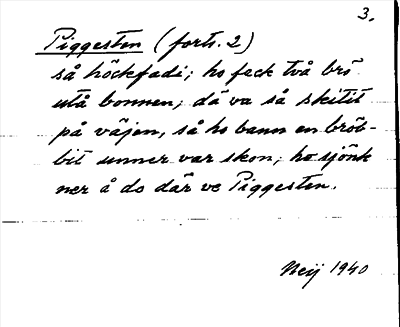 3.
Piggesten (forts. 2)
så höckfadi; ho feck två brö
utå bonnen, dä va så skitit
på väjen, så ho bann en bröb-
bit unner var skon, ho sjönk
ner å do där ve Piggesten.
Neij 1940